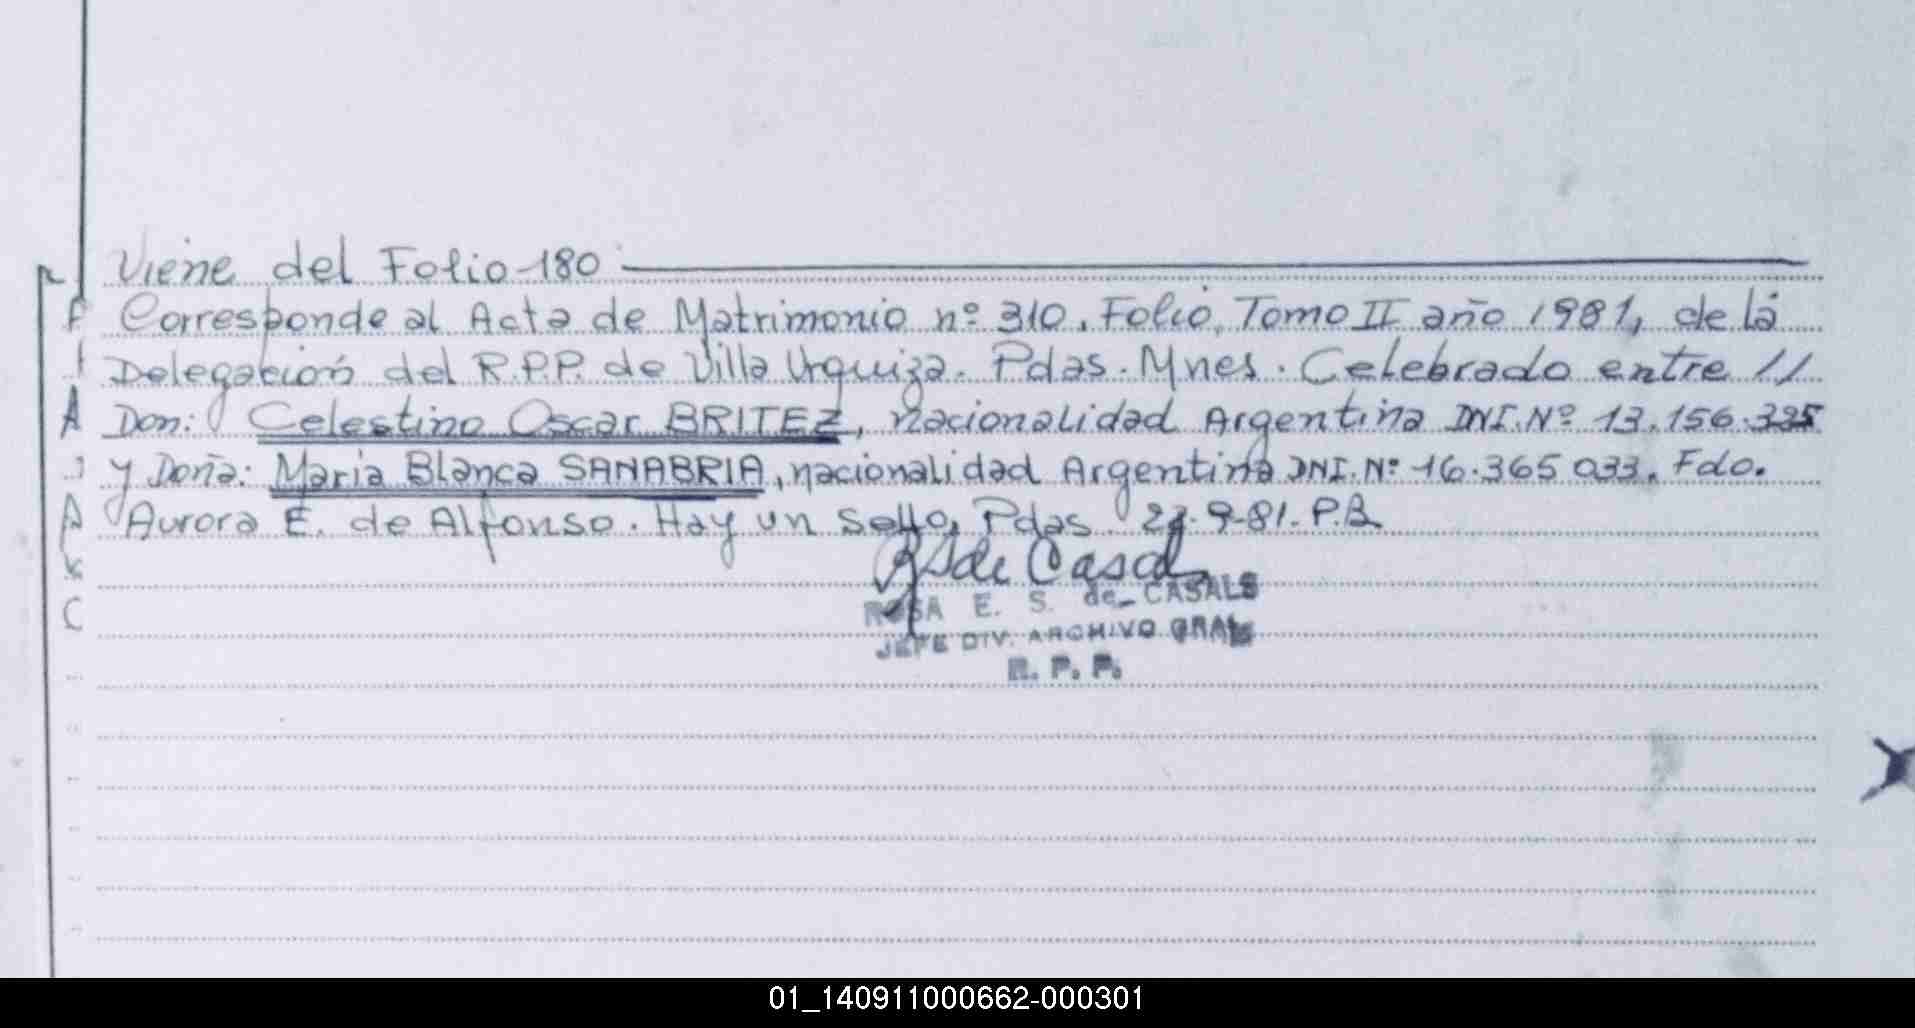 Viene del Folio 180
Corresponde al Acta de Matrimonio nº 310, Folio, Tomo II año 1981, de la
Delegación del R.P.P. de Villa Urquiza. Pdas. Mnes. Celebrado entre //
Don: Celestino Oscar BRITEZ, nacionalidad Argentina DNI. Nº 13.156.335
y Doña: Maria Blanca SANABRIA, nacionalidad Argentina DNI. Nº 16.365.033. Fdo.
Aurora E. de Alfonso. Hay un Sello, Pdas. 9-81. P.B.
de Casals
ROSA E. S. de CASALS
JEFE DIV. ARCHIVO GRAL
R. P. P.
01_140911000662-000301